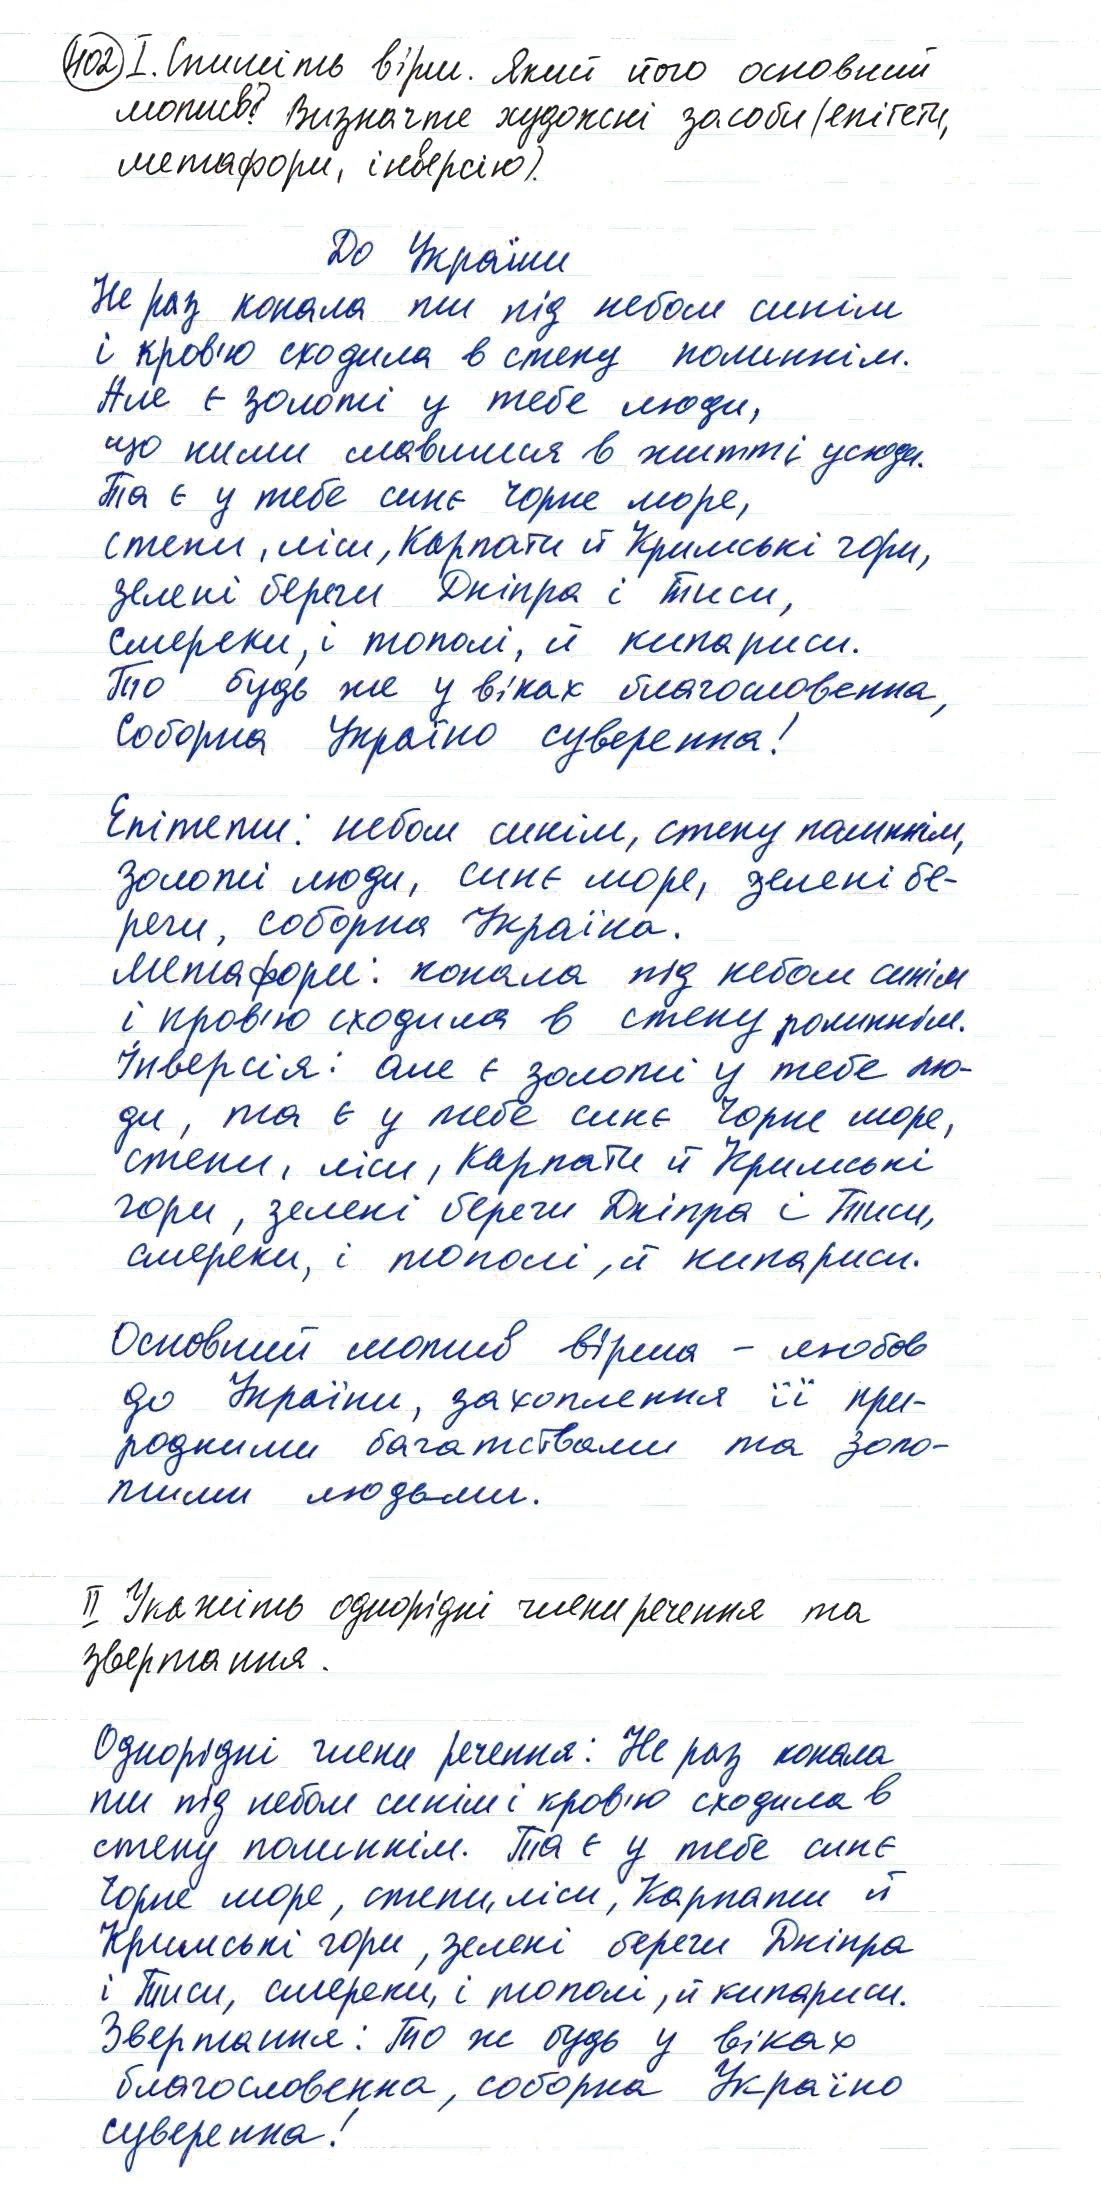 402 I. Спишіть вірш. Який його основний
мотив? Визначте художні засоби (епітети,
метафори, інверсію).
До України
Не раз конала ти під небом синім
і кров'ю сходила в степу полиннім.
Але є золоті у тебе люди,
що ними славишся в житті усюди.
Та є у тебе синє Чорне море,
степи, ліси, Карпати й Кримські гори,
зелені береги Дніпра і Тиси,
смереки, і тополі, й кипариси.
То будь же у віках благословенна,
Соборна Україно суверенна!
Епітети: небом синім, степу полиннім,
золоті люди, синє море, зелені бе-
реги, соборна Україна.
Метафори: конала під небом синім
і кров'ю сходила в степу полиннім.
Інверсія: але є золоті у тебе лю-
ди, та є у тебе синє Чорне море,
степи, ліси, Карпати й Кримські
гори, зелені береги Дніпра і Тиси,
смереки, і тополі, й кипариси.
Основний мотив вірша - любов
до України, захоплення її при-
родними багатствами та золо-
тими людьми.
II Укажіть однорідні члени речення та
звертання.
Однорідні члени речення: Не раз конала
ти під небом синім і кров'ю сходила в
степу полиннім. Та є у тебе синє
Чорне море, степи, ліси, Карпати й
Кримські гори, зелені береги Дніпра
і Тиси, смереки, і тополі, й кипариси.
Звертання: То ж будь у віках
благословенна, соборна Україно
суверенна!